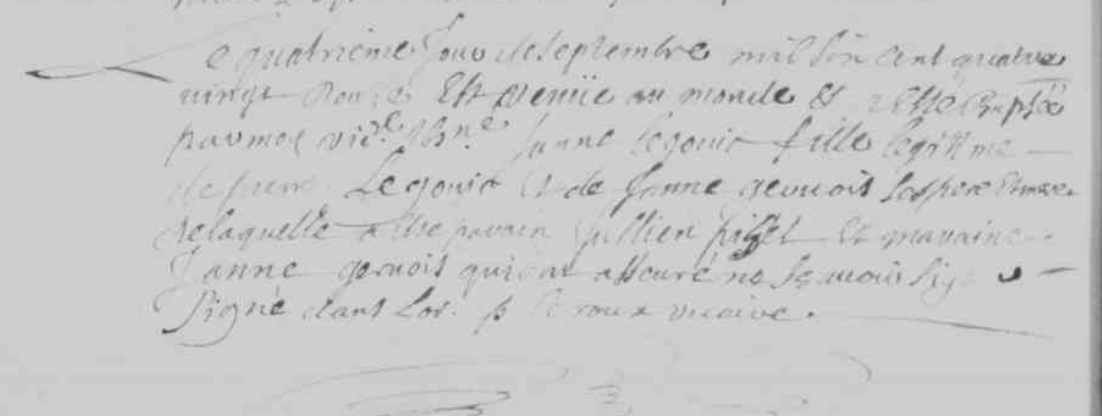 Le quatrième Jour de septembre mil six cent quatre
vingt douze Est venüe au monde et a esté Baptéé
par moy vic.re Janne Le gouic fille legittime
de pierre Le gouic et de Janne gervois ses pere et mere
de laquelle a esté parain et maraine
Janne gervois qui ont asseuré ne scavoir sig
Signé dans Lor. p le roux vicaire.